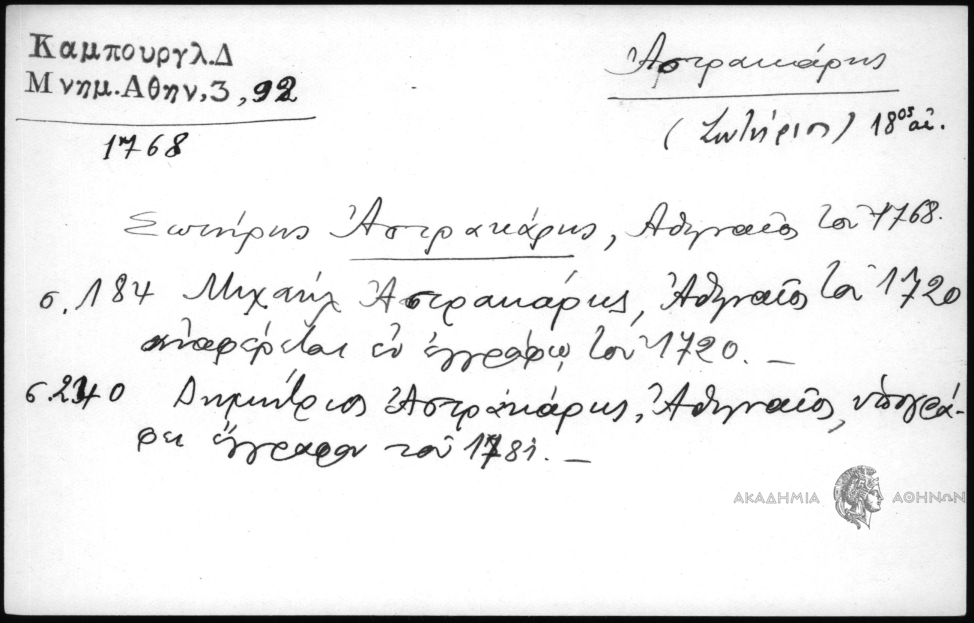 Καμπουργλ.Δ
Μνημ.Αθην,3,92
1768
Ἀστρακάρης
(Σωτήριος) 18ος αἰ.
Σωτήρης Ἀστρακάρης, Ἀθηναῖος τοῦ 1768.
σ. 184 Μιχαήλ Ἀστρακάρης, Ἀθηναῖος τοῦ 1720
ἀναφέρεται ἐν ἐγγράφῳ τοῦ 1720. —
σ. 240 Δημήτριος Ἀστρακάρης, Ἀθηναῖος, ὑπογρά-
φει ἔγγραφον τοῦ 1781. —
ΑΚΑΔΗΜΙΑ ΑΘΗΝΩΝ